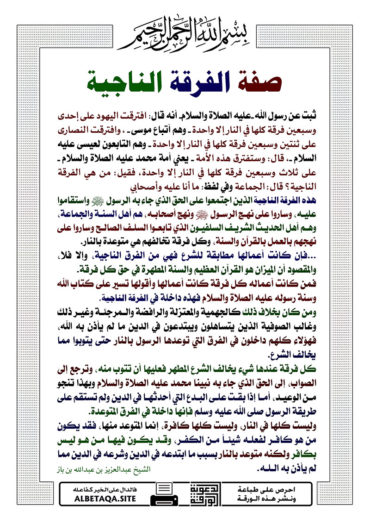 بسم الله الرحمن الرحيم
صفة الفرقة الناجية
ثبت عن رسول الله ـ عليه الصلاة والسلام ـ أنه قال: افترقت اليهود على إحدى
وسبعين فرقة كلها في النار إلا واحدة ـ وهم أتباع موسى ـ ، وافترقت النصارى
على ثنتين وسبعين فرقة كلها في النار إلا واحدة ـ وهم التابعون لعيسى عليه
السلام ـ، قال: وستفترق هذه الأمة ـ يعني أمة محمد عليه الصلاة والسلام ـ
على ثلاث وسبعين فرقة كلها في النار إلا واحدة، فقيل: من هي الفرقة
الناجية؟ قال: الجماعة وفي لفظ: ما أنا عليه وأصحابي
هذه الفرقة الناجية الذين اجتمعوا على الحق الذي جاء به الرسول ﷺ واستقاموا
عليه، وساروا على نهج الرسول ﷺ ونهج أصحابه، هم أهل السنة والجماعة،
وهم أهل الحديث الشريف السلفيون الذي تابعوا السلف الصالح وساروا على
نهجهم بالعمل بالقرآن والسنة، وكل فرقة تخالفهم هي متوعدة بالنار.
...فإن كانت أعمالها مطابقة للشرع فهي من الفرق الناجية، وإلا فلا،
والمقصود أن الميزان هو القرآن العظيم والسنة المطهرة في حق كل فرقة.
فمن كانت أعماله كل فرقة كانت أعمالها وأقولها تسير على كتاب الله
وسنة رسوله عليه الصلاة والسلام فهذه داخلة في الفرقة الناجية.
ومن كان بخلاف ذلك كالجهمية والمعتزلة والرافضة والمرجئة وغير ذلك
وغالب الصوفية الذين يتساهلون ويبتدعون في الدين ما لم يأذن به الله،
فهؤلاء كلهم داخلون في الفرق التي توعدها الرسول بالنار حتى يتوبوا مما
يخالف الشرع.
كل فرقة عندها شيء يخالف الشرع المطهر فعليها أن تتوب منه، وترجع إلى
الصواب، إلى الحق الذي جاء به نبينا محمد عليه الصلاة والسلام وبهذا تنجو
من الوعيد، أما إذا بقت على البدع التي أحدثتها في الدين ولم تستقم على
طريقة الرسول صلى الله عليه وسلم فإنها داخلة في الفرقة المتوعدة.
وليست كلها في النار، وليست كلها كافرة، إنما المتوعد منها، فقد يكون
من هو كافر لفعله شيئا من الكفر، وقد يكون فيها من هو ليس
بكافر ولكنه متوعد بالنار بسبب ما ابتدعه في الدين وشرعه في الدين مما
لم يأذن به الله.
الشيخ عبدالعزيز بن عبدالله بن باز
احرص على طباعة
ونشر هذه الورقة
الدعوية
فالدال على الخير كفاعله
ALBETAQA.SITE